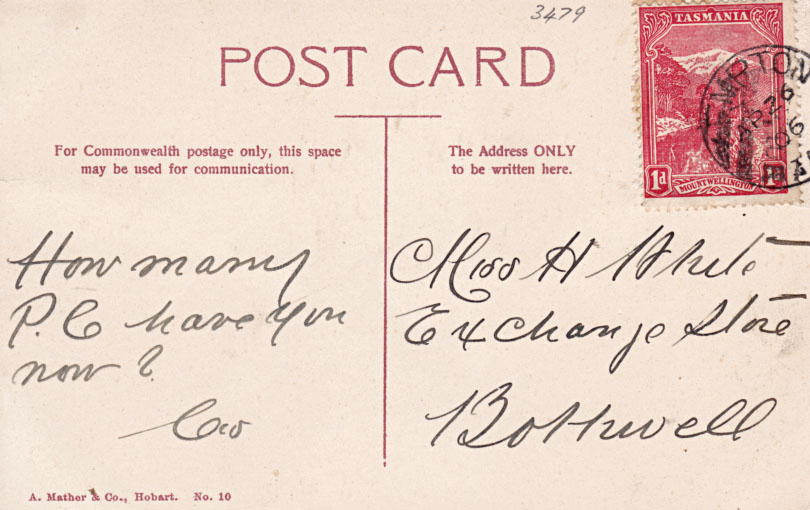 3479
POST CARD
TASMANIA
1d
MOUNT WELLINGTON
AP 26
06
For Commonwealth postage only, this space
may be used for communication.
The Address ONLY
to be written here.
How many
P.C have you
now?
Miss H White
Exchange Store
Bothwell
A. Mather & Co., Hobart. No. 10